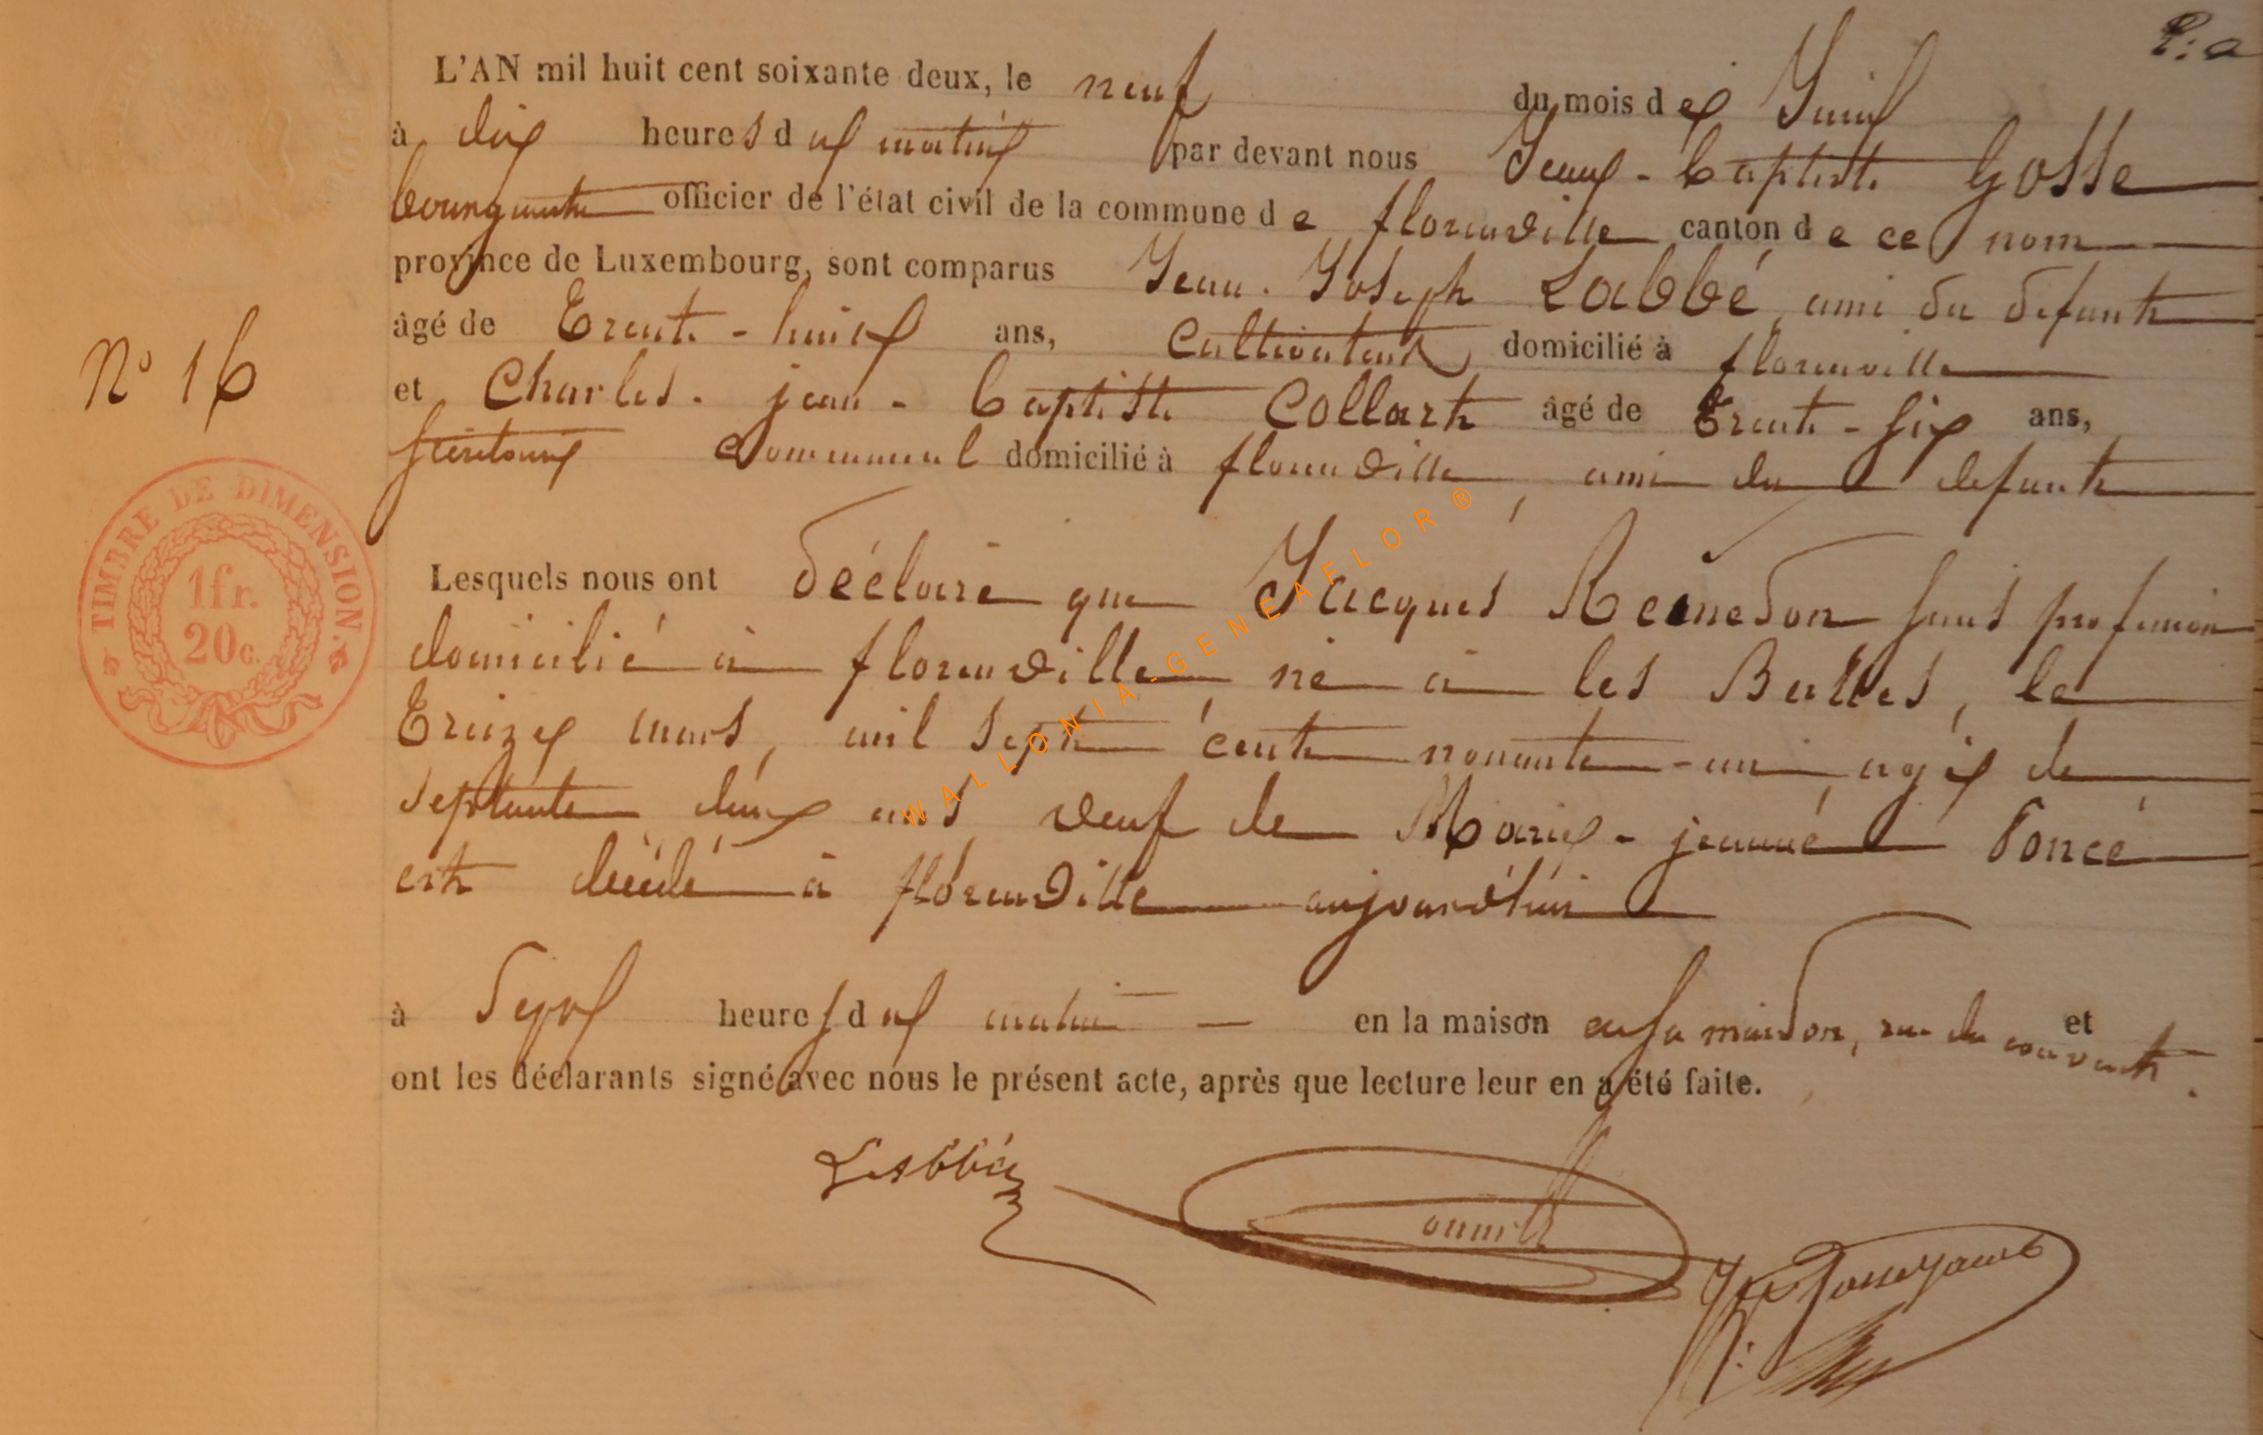 L'AN mil huit cent soixante deux, le neuf du mois de Juin
à dix heures du matin par devant nous Jean-baptiste Gosse
bourgmestre officier de l'état civil de la commune de florenville canton de ce nom
province de Luxembourg, sont comparus Jean Joseph Labbé, ami du défunt
âgé de Trente-huit ans, Cultivateur domicilié à florenville
et Charles-jean-baptiste Collart âgé de Trente-six ans,
secrétaire Communal domicilié à florenville, ami du défunt
N° 16
TIMBRE DE DIMENSION.
1fr.
20c.
Lesquels nous ont déclaré que Jacques Reinedon sans profession
domicilié à florenville né à les Bulles, le
Treize mars, mil sept cent nonante-un, agé de
septante deux ans veuf de Marie-jeanne Poncé
est décédé à florenville aujourd'hui
à Sept heures du matin en la maison en sa maison, rue du couvent. et
ont les déclarants signé avec nous le présent acte, après que lecture leur en a été faite.
Labbé
WALLONIA-GENEAFLOR®